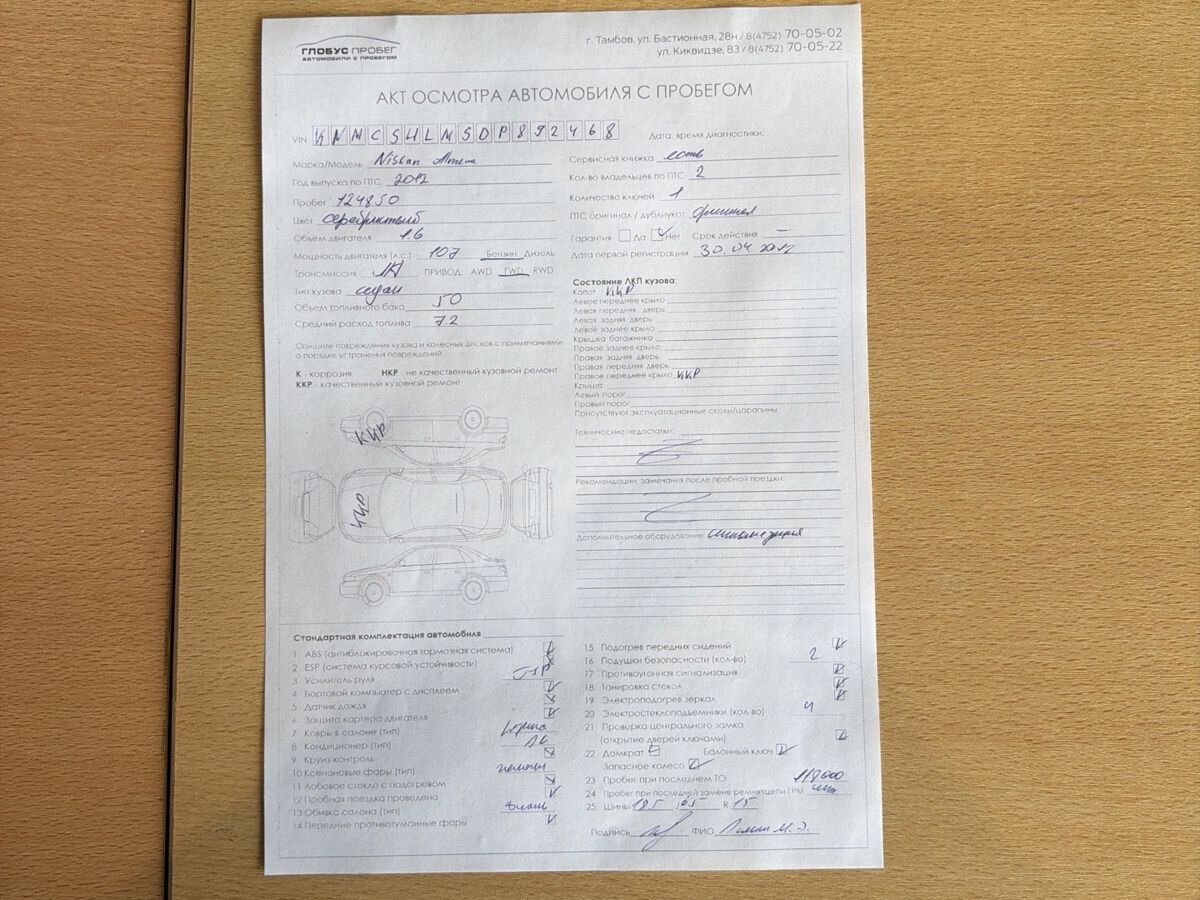 ГЛОБУС ПРОБЕГ
АВТОМОБИЛИ С ПРОБЕГОМ
г. Тамбов, ул. Бастионная, 28н / 8(4752) 70-05-02
ул. Киквидзе, 83 / 8(4752) 70-05-22
АКТ ОСМОТРА АВТОМОБИЛЯ С ПРОБЕГОМ
VIN
Дата, время диагностики:
Марка/Модель Nissan Almera
Год выпуска по ПТС 2012
Пробег 124850
Цвет серебристый
Объем двигателя 1.6
Мощность двигателя (л.с.) 107 Бензин Дизель
Трансмиссия ПРИВОД: AWD FWD RWD
Тип кузова седан
Объем топливного бака 50
Средний расход топлива 7.2
Опишите повреждения кузова и колесных дисков с примечаниями
о порядке устранения повреждений
К - коррозия НКР - не качественный кузовной ремонт
ККР - качественный кузовной ремонт
ККР
ККР
Сервисная книжка есть
Кол-во владельцев по ПТС 2
Количество ключей 1
ПТС оригинал / дубликат:
Гарантия Да Нет Срок действия –
Дата первой регистрации 30.04.2012
Состояние ЛКП кузова:
Капот ККР
Левое переднее крыло
Левая передняя дверь
Левая задняя дверь
Левое заднее крыло
Крышка багажника
Правое заднее крыло
Правая задняя дверь
Правая передняя дверь
Правое переднее крыло ККР
Крыша
Левый порог
Правый порог
Присутствуют эксплуатационные сколы/царапины
Технические недостатки:
Рекомендации, замечания после пробной поездки:
Дополнительное оборудование:
Стандартная комплектация автомобиля
1 ABS (антиблокировочная тормозная система)
2 ESP (система курсовой устойчивости)
3 Усилитель руля
4 Бортовой компьютер с дисплеем
5 Датчик дождя
6 Защита картера двигателя
7 Ковры в салоне (тип)
8 Кондиционер (тип)
9 Круиз-контроль
10 Ксеноновые фары (тип)
11 Лобовое стекло с подогревом
12 Пробная поездка проведена
13 Обивка салона (тип) ткань
14 Передние противотуманные фары
15 Подогрев передних сидений
16 Подушки безопасности (кол-во) 2
17 Противоугонная сигнализация
18 Тонировка стекол
19 Электроподогрев зеркал
20 Электростеклоподъемники (кол-во) 4
21 Проверка центрального замка
(открытие дверей ключами)
22 Домкрат Балонный ключ
Запасное колесо
23 Пробег при последнем ТО 118000
24 Пробег при последней замене ремня/цепи ГРМ
25 Шины 185 / 65 R 15
Подпись ФИО